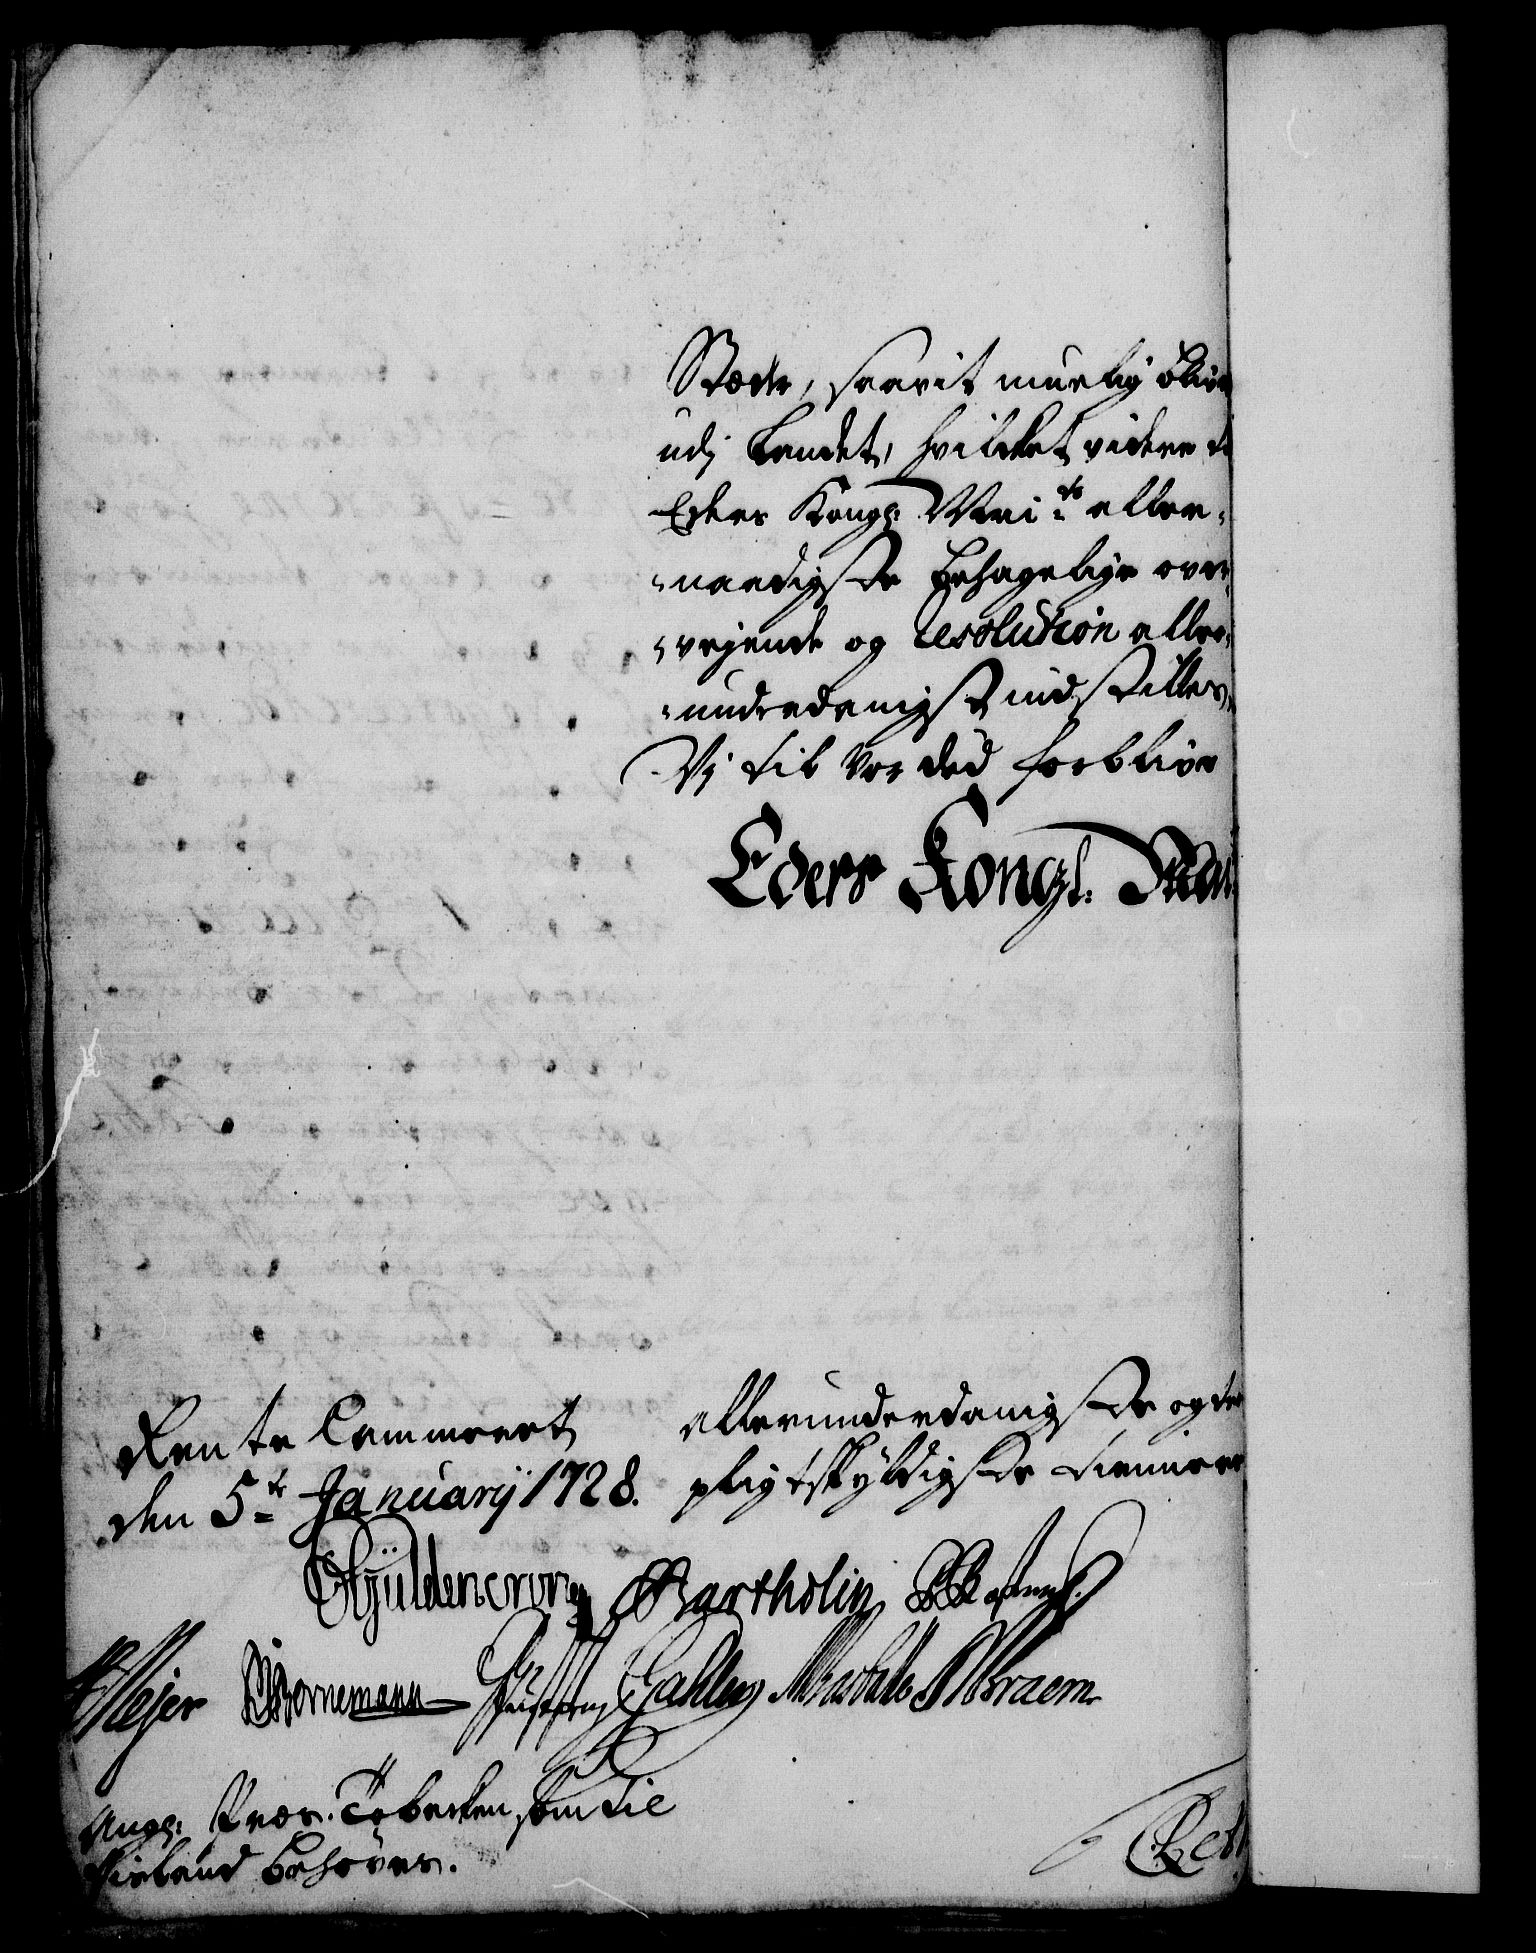 Stæder, saavit muelig blive
udj Landet, hvilcket videre til
Eders Kongl: May:ts aller-
-naadigste behagelige over-
-vejende og Resolution aller-
-underdanigst indstilles,
Vj til vor død forblive
Eders Kongl: May
Rente Cammeret
den 5te Januarij 1728.
allerunderdanigste og
pligtskyldigste tienere
Gyldencrone Bartholin
Mejer Bornemann Braem
Ang: Tobacken, som til
behøves.